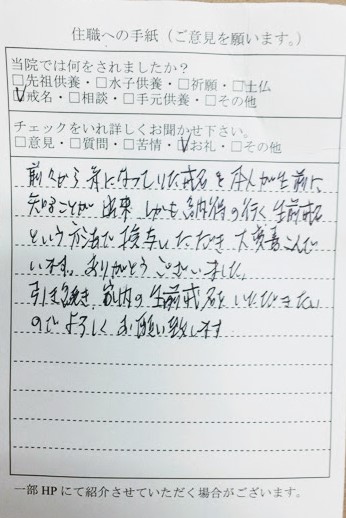 住職への手紙（ご意見を願います。）
当院では何をされましたか？
□先祖供養・□水子供養・□祈願・□士仏
☑戒名・□相談・□手元供養・□その他
チェックをいれ詳しくお聞かせ下さい。
□意見・□質問・□苦情・☑お礼・□その他
前々から気になっていた戒名を本人が生前に
知ることが出来しかも納得の行く生前戒名
という方法で授与いただき大変喜こんで
います。ありがとうございました。
引き続き家内の生前戒名をいただきたい
のでよろしくお願い致します
一部HPにて紹介させていただく場合がございます。